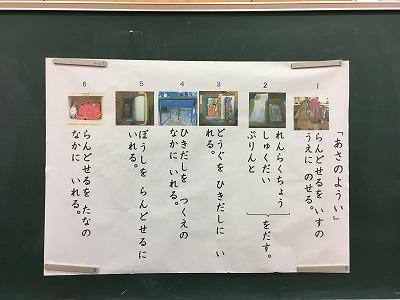 「あさのようい」
1
らんどせるを いすの
うえに のせる。
2
れんらくちょう
しゅくだい
ぷりんと
をだす。
3
どうぐを ひきだしに い
れる。
4
ひきだしを つくえの
なかに いれる。
5
ぼうしを らんどせるに
いれる。
6
らんどせるを たなの
なかに いれる。